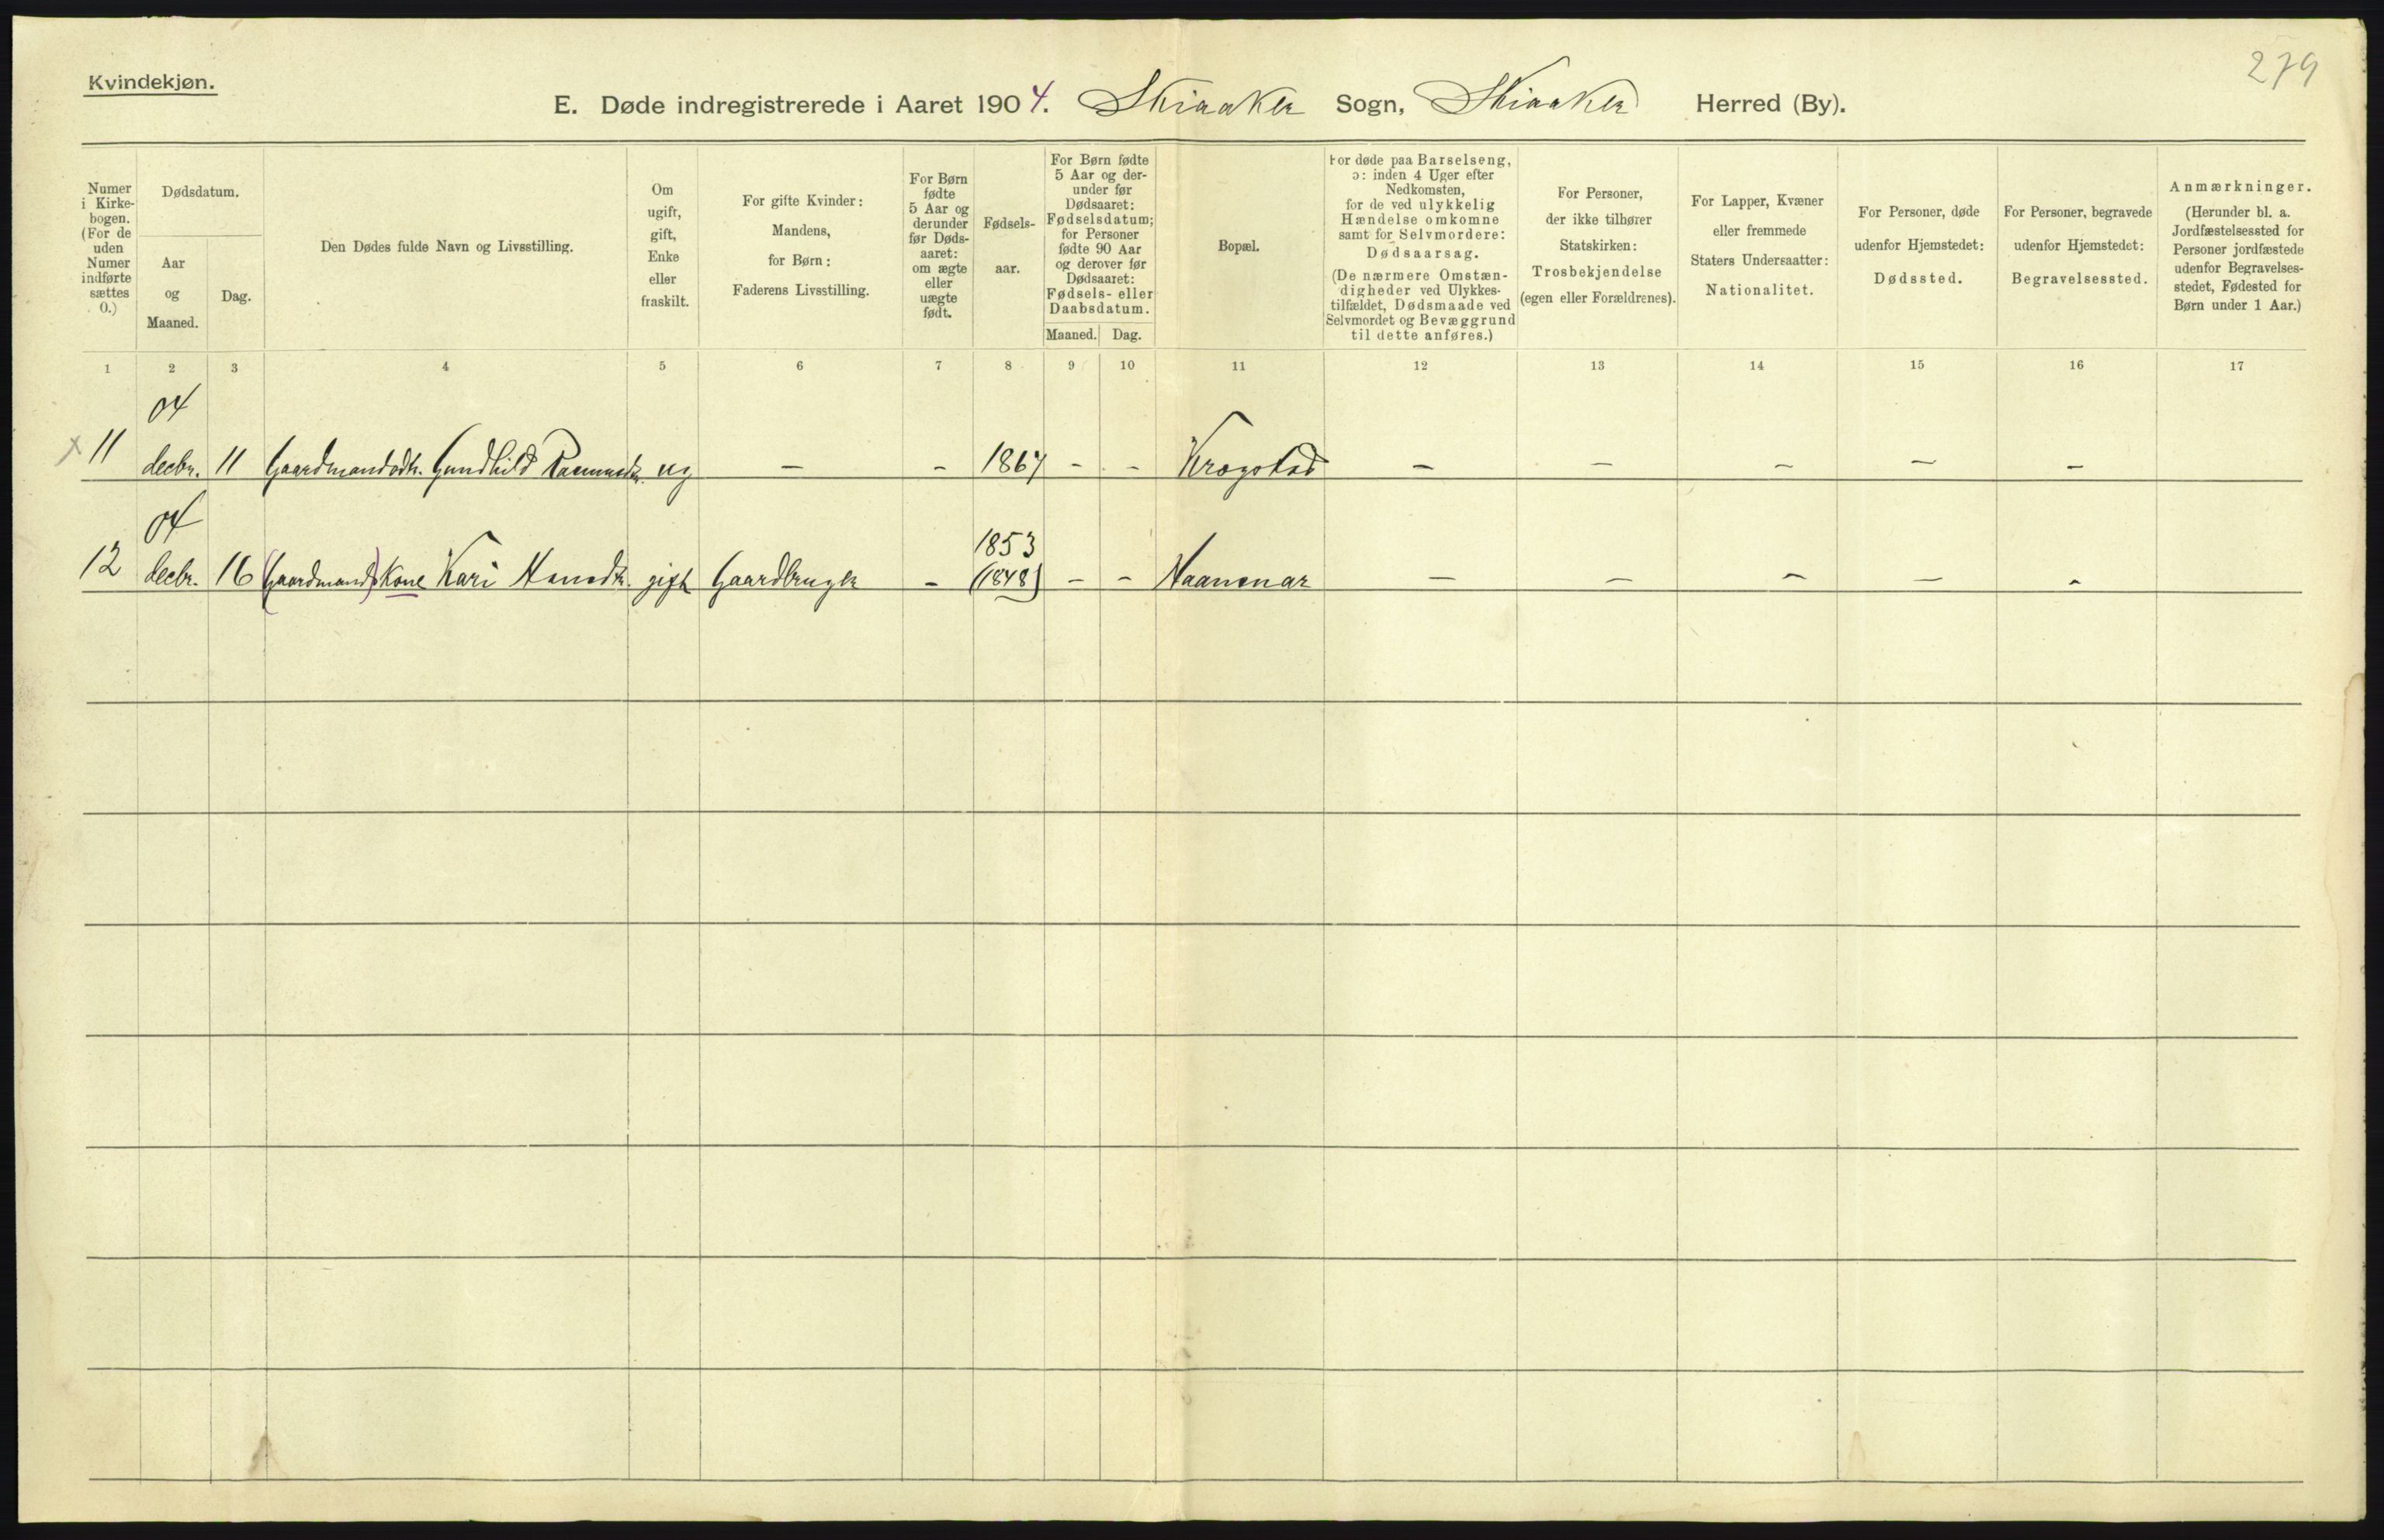 279
Kvindekjøn.
E. Døde indregistrerede i Aaret 1904. Skiaaker Sogn, Skiaaker Herred (By).
Numer i Kirkebogen. (For de uden Numer indførte sættes 0.)
Dødsdatum.
Aar og Maaned.
Dag.
Den Dødes fulde Navn og Livsstilling.
Om ugift, gift, Enke eller fraskilt.
For gifte Kvinder: Mandens, for Børn: Faderens Livsstilling.
For Børn fødte 5 Aar og derunder før Dødsaaret: om ægte eller uægte født.
Fødselsaar.
For Børn fødte 5 Aar og derunder før Dødsaaret: Fødselsdatum; for Personer fødte 90 Aar og derover før Dødsaaret: Fødsels- eller Daabsdatum.
Maaned. Dag.
Bopæl.
For døde paa Barselseng, ɔ: inden 4 Uger efter Nedkomsten, for de ved ulykkelig Hændelse omkomne samt for Selvmordere: Dødsaarsag. (De nærmere Omstændigheder ved Ulykkestilfældet, Dødsmaade ved Selvmordet og Bevæggrund til dette anføres.)
For Personer, der ikke tilhører Statskirken: Trosbekjendelse (egen eller Forældrenes).
For Lapper, Kvæner eller fremmede Staters Undersaatter: Nationalitet.
For Personer, døde udenfor Hjemstedet: Dødssted.
For Personer, begravede udenfor Hjemstedet: Begravelsessted.
Anmærkninger. (Herunder bl. a. Jordfæstelsessted for Personer jordfæstede udenfor Begravelsesstedet, Fødested for Børn under 1 Aar.)
1 2 3 4 5 6 7 8 9 10 11 12 13 14 15 16 17
04
x 11 decbr. 11 Gaardmandsdtr. Gundhild Rasmusdtr. ug – – 1867 – – Krogstad – – – – –
04
1853
12 decbr. 16 (Gaardmands) Kone Kari Hansdtr. gift Gaardbruger – (1848) – – – – – – –